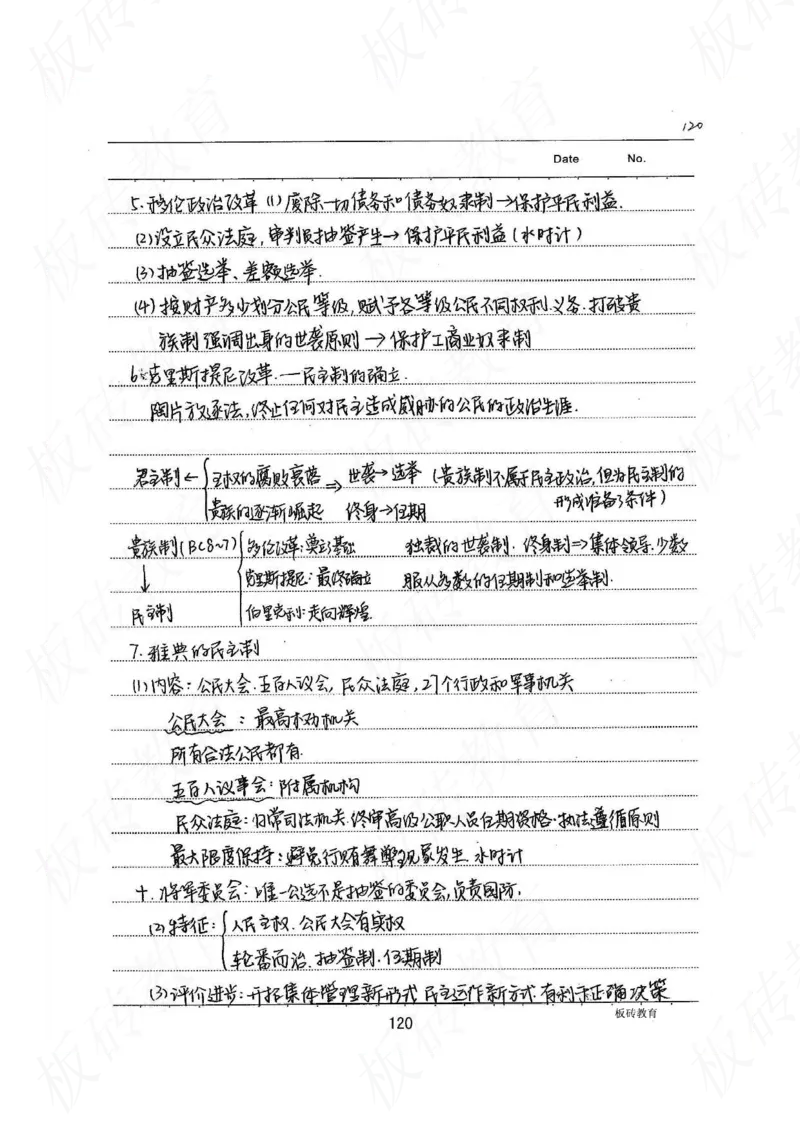 120
Date No.
5.移伦政治改革 (1)废除一切债务和债务奴隶制→保护平民利益.
(2)设立民众法庭,审判员抽签产生→保护平民利益(水时计)
(3)抽签选举、差额选举.
(4)按财产多少划分公民等级,赋予各等级公民不同权利、义务.打破贵
族制强调出身的世袭原则→保护工商业奴隶制
6.克里斯提尼改革.—民主制的确立.
陶片放逐法,终止任何对民主造成威胁的公民的政治生涯.
君主制← {王权的腐败衰落 ⇒ 世袭→选举 (贵族制不属于民主政治,但为民主制的
贵族的逐渐崛起 终身→任期 形成准备了条件)
贵族制(BC8~7) {梭伦改革:奠定基础 独裁的世袭制.终身制⇒集体领导.少数
↓ 克里斯提尼:最终确立 服从多数的任期制和选举制.
民主制 伯里克利:走向辉煌.
7.雅典的民主制
(1)内容:公民大会.五百人议会,民众法庭,27个行政和军事机关
公民大会:最高权力机关
所有合法公民都有.
五百人议事会:附属机构
民众法庭:日常司法机关.终审高级公职人员任期资格.执法遵循原则
最大限度保持:避免行贿舞弊现象发生.水时计
十.将军委员会:唯一公选不是抽签的委员会,负责国防.
(2)特征: {人民主权.公民大会有实权
轮番而治.抽签制.任期制
(3)评价进步:开拓集体管理新形式 民主运作新方式 有利于正确决策
板砖教育
120